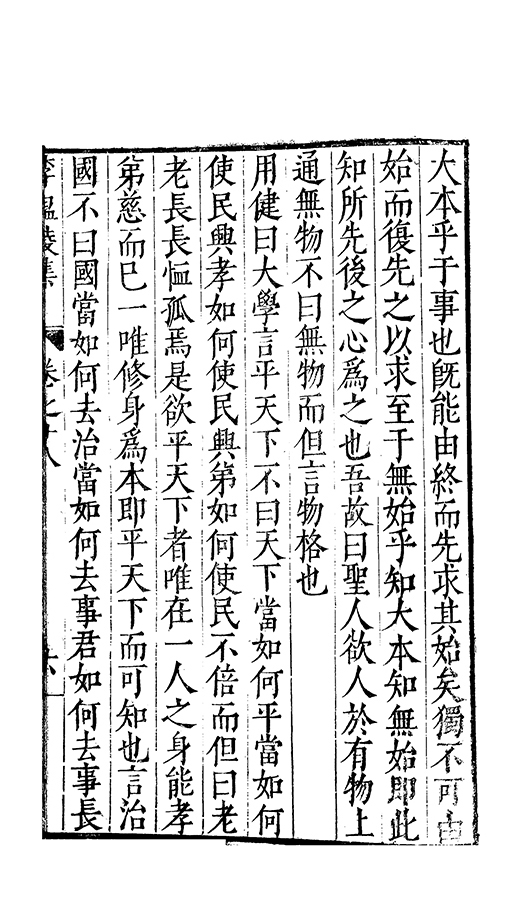 大本乎于事也旣能由終而先求其始矣獨不可由
始而復先之以求至于無始乎知大本知無始即此
知所先後之心爲之也吾故曰聖人欲人於有物上
通無物不曰無物而但言物格也
用健曰大學言平天下不曰天下當如何平當如何
使民興孝如何使民興第如何使民不倍而但曰老
老長長恤孤焉是欲平天下者唯在一人之身能孝
第慈而已一唯修身爲本即平天下而可知也言治
國不曰國當如何去治當如何去事君如何去事長
李溫陵集 卷之十八 六